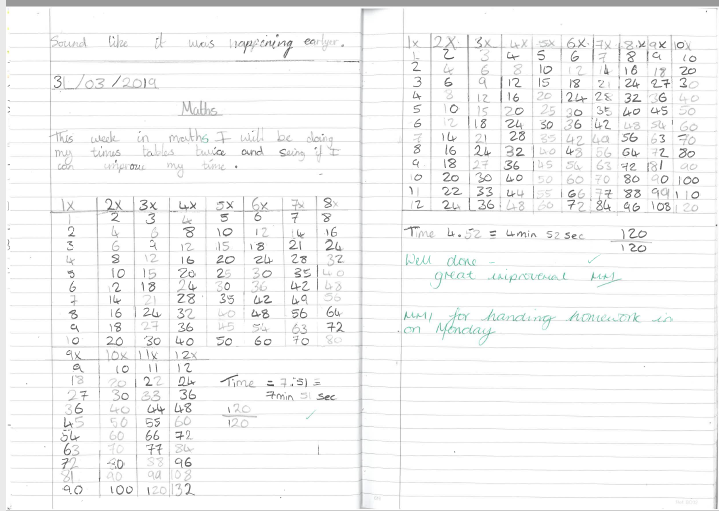 Sound like it was happening earlyer.
31/03/2019
Maths
This week in maths I will be doing
my times tables twice and seing if I
can improve my time.
1x 2x 3x 4x 5x 6x 7x 8x
1 2 3 4 5 6 7 8
2 4 6 8 10 12 14 16
3 6 9 12 15 18 21 24
4 8 12 16 20 24 28 32
5 10 15 20 25 30 35 40
6 12 18 24 30 36 42 48
7 14 21 28 35 42 49 56
8 16 24 32 40 48 56 64
9 18 27 36 45 54 63 72
10 20 30 40 50 60 70 80
9x 10x 11x 12x
9 10 11 12
18 20 22 24
27 30 33 36
36 40 44 48
45 50 55 60
54 60 66 72
63 70 77 84
72 80 88 96
81 90 99 108
90 100 120 132
Time = 7:51 =
7min 51 sec
120
120
1x 2x 3x 4x 5x 6x 7x 8x 9x 10x
1 2 3 4 5 6 7 8 9 10
2 4 6 8 10 12 14 16 18 20
3 6 9 12 15 18 21 24 27 30
4 8 12 16 20 24 28 32 36 40
5 10 15 20 25 30 35 40 45 50
6 12 18 24 30 36 42 48 54 60
7 14 21 28 35 42 49 56 63 70
8 16 24 32 40 48 56 64 72 80
9 18 27 36 45 54 63 72 81 90
10 20 30 40 50 60 70 80 90 100
11 22 33 44 55 66 77 88 99 110
12 24 36 48 60 72 84 96 108 120
Time 4.52 = 4min 52 sec
120
120
Well done -
great improvement
for handing homework in
on Monday